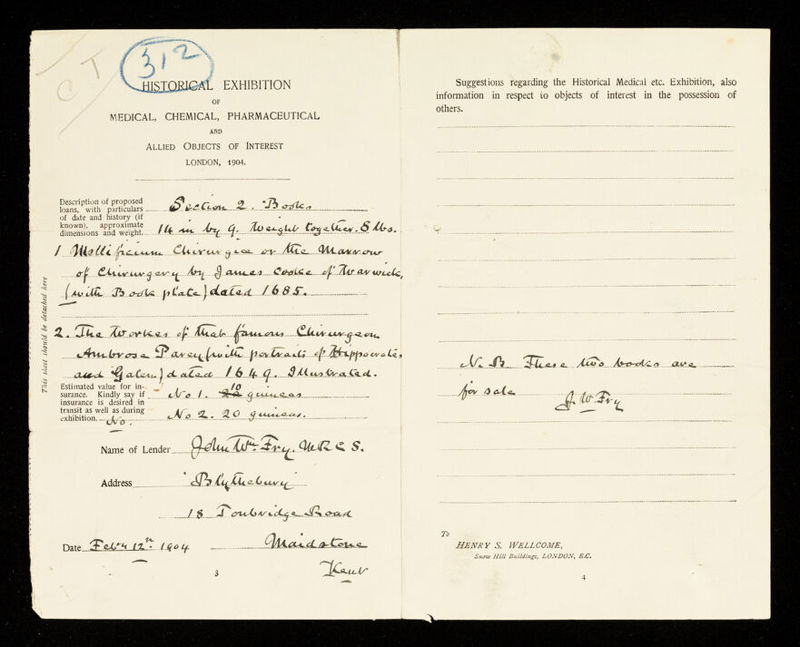 CT
312
HISTORICAL EXHIBITION
OF
MEDICAL, CHEMICAL, PHARMACEUTICAL
AND
ALLIED OBJECTS OF INTEREST
LONDON, 1904.
Description of proposed
loans, with particulars
of date and history (if
known), approximate
dimensions and weight.
Section 2. "Books
14 in by 9. Weight together. 8 lbs.
1 Mellificium Chirurgiae or the Marrow
of Chirurgery by James Cooke of Warwick,
(with Book plate) dated 1685.
2. The Workes of that famous Chirurgeon
Ambrose Parey (with portraits of Hippocrates
and Galen) dated 1649. Illustrated.
Estimated value for in-
surance. Kindly say if
insurance is desired in
transit as well as during
exhibition.
No.
No 1. 10 guineas
No 2. 20 guineas.
Name of Lender John Wm. Fry. M.R.C.S.
Address Blythebury
18 Tonbridge Road
Maidstone
Kent
Date Feby 12th 1904
3
This sheet should be detached here
Suggestions regarding the Historical Medical etc. Exhibition, also
information in respect to objects of interest in the possession of
others.
N.B. These two books are
for sale J. W. Fry
To
HENRY S. WELLCOME,
Snow Hill Buildings, LONDON, E.C.
4